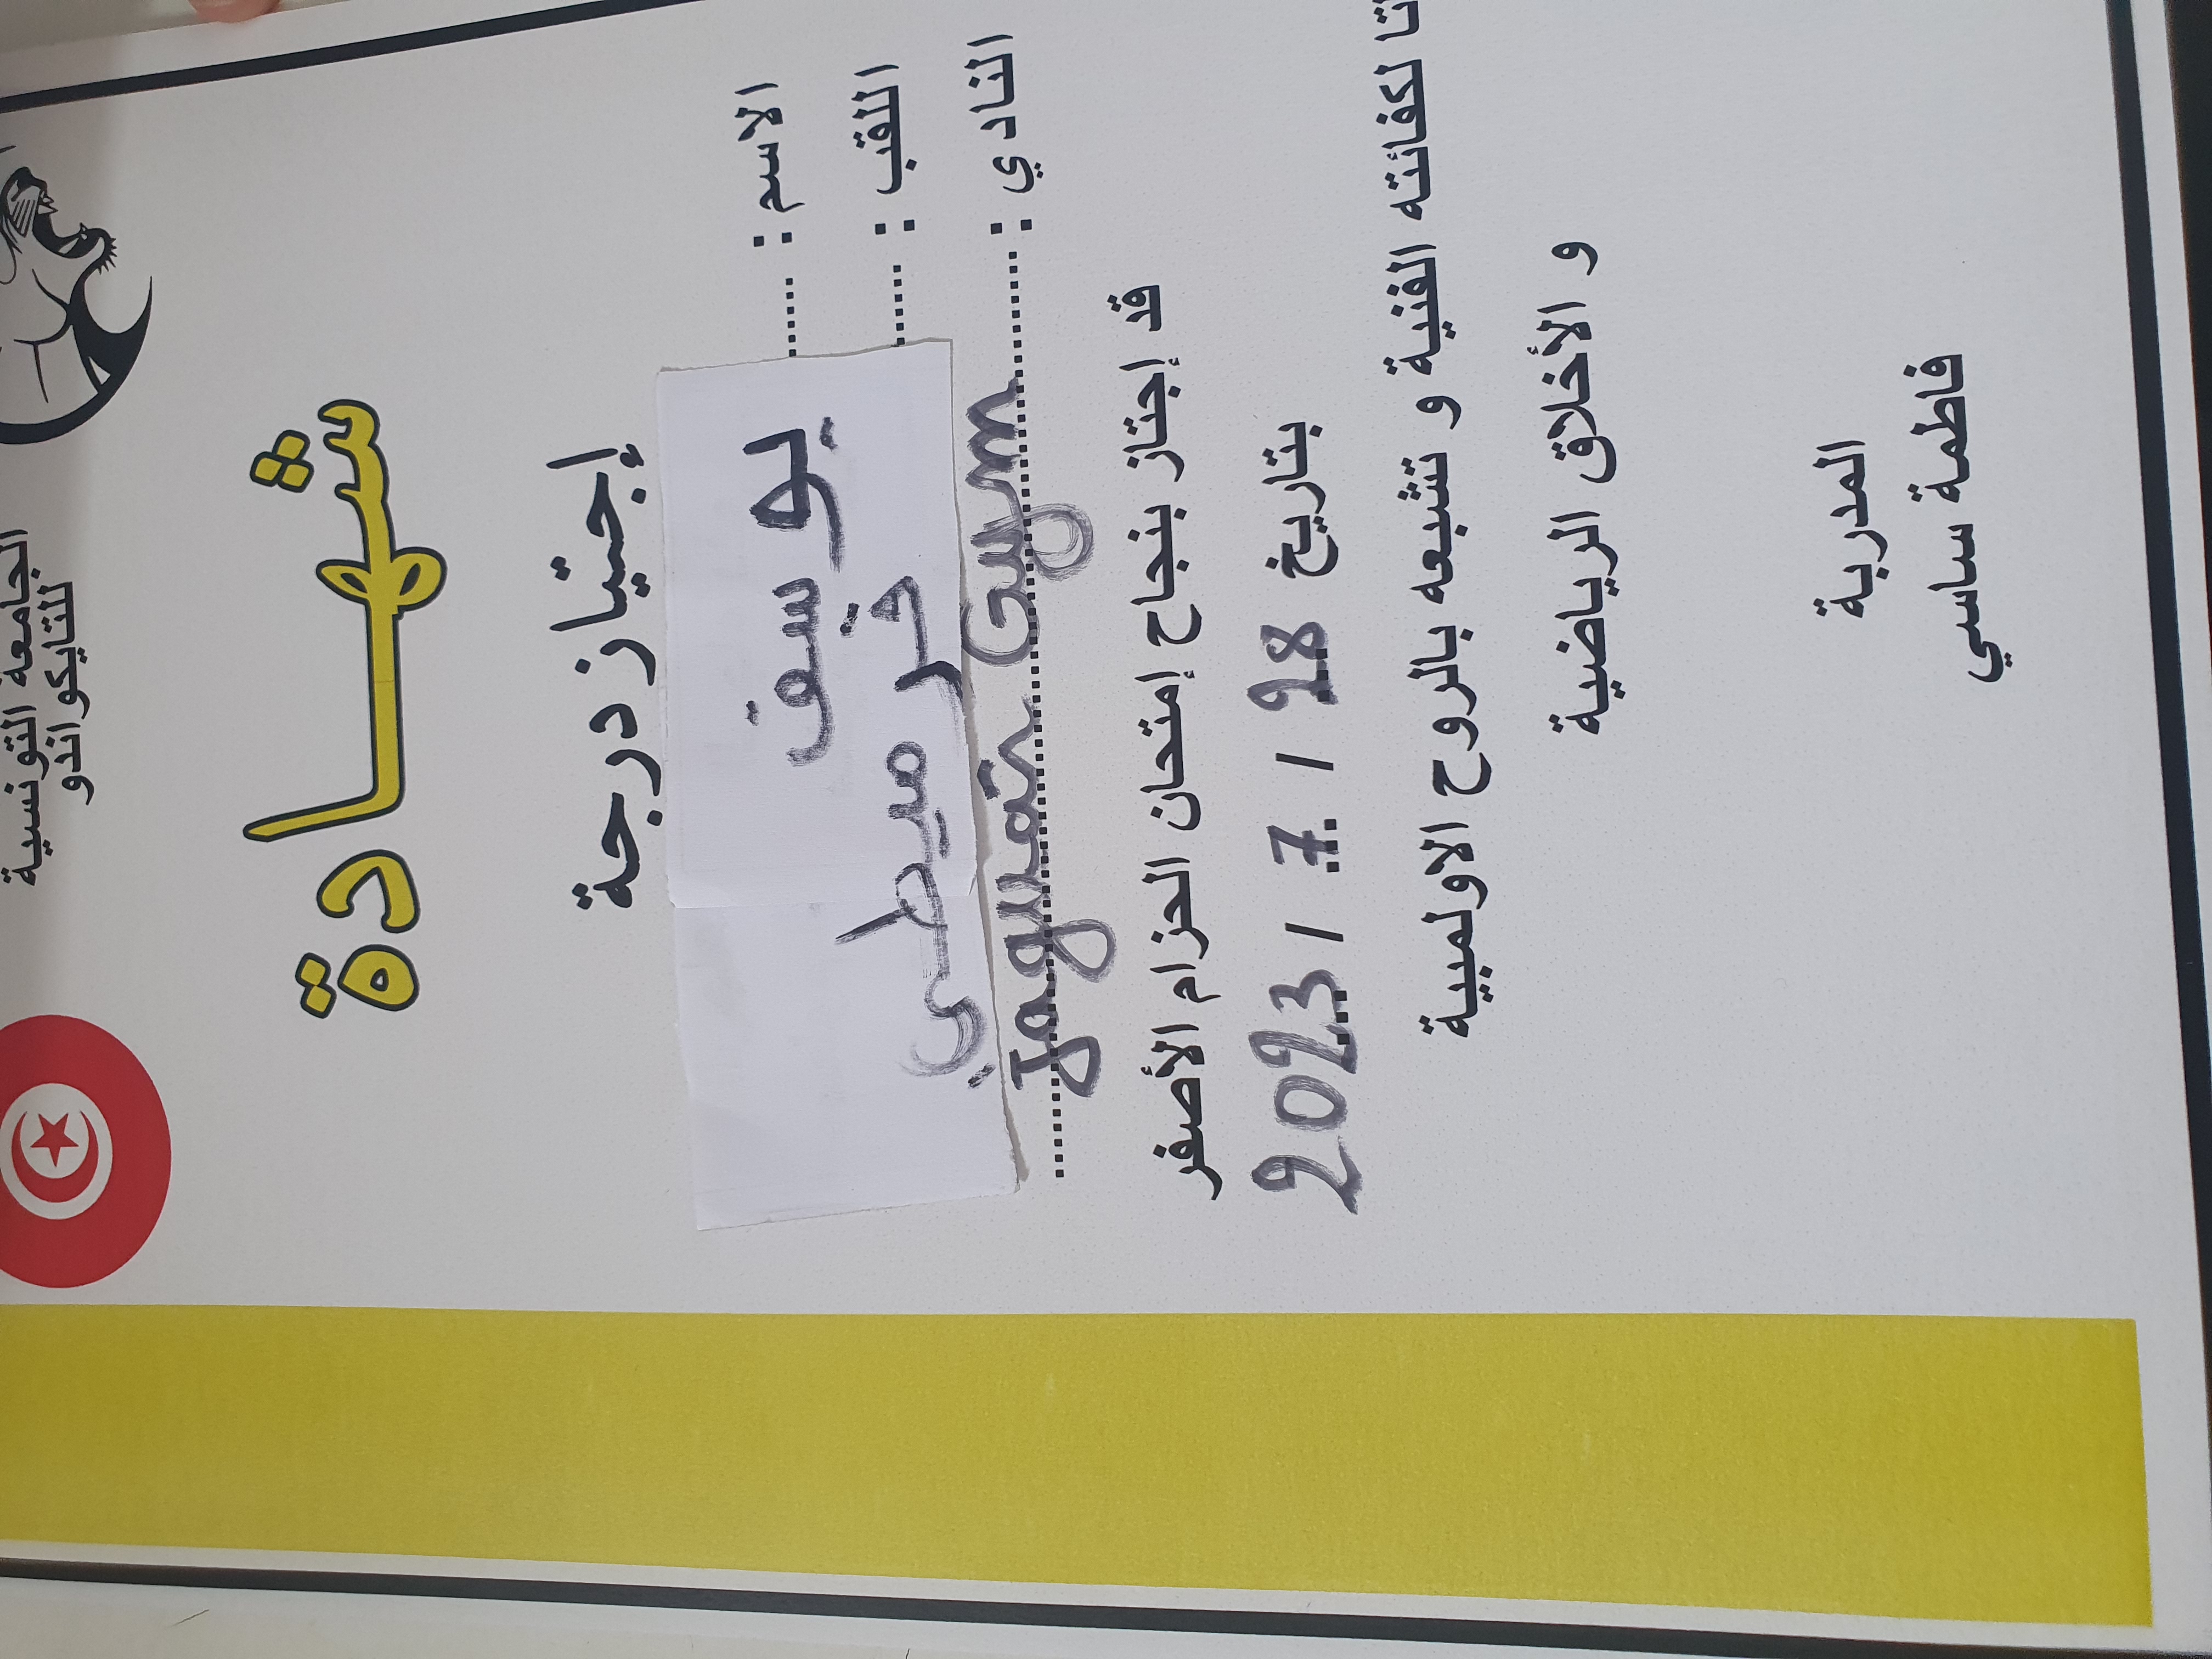 الجامعة التونسية
للتايكواندو
شهادة
إجتياز درجة
الاسم : ...... يوسف
اللقب : ...... خرميطي
النادي : ............ Jaguar Gym ............
قد إجتاز بنجاح إمتحان الحزام الأصفر
بتاريخ 28 / 7 / 2023
لكفائته الفنية و تشبعه بالروح الاولمبية
و الأخلاق الرياضية
المدربة
فاطمة ساسي